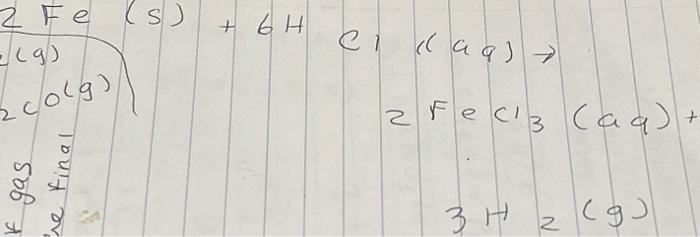 2 Fe (s) + 6H Cl (aq) →
2 FeCl3 (aq) +
3H2 (g)
(g)
2CO(g)
gas
final